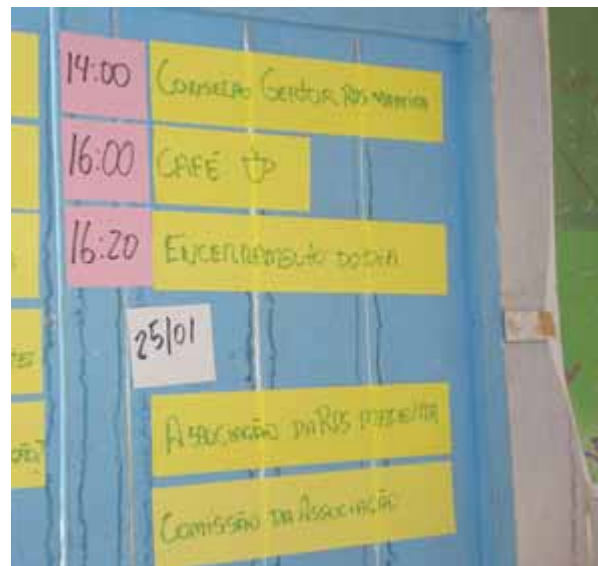 14:00 Conselho Gestor RDS
16:00 CAFÉ
16:20 ENCERRAMENTO DO DIA
25/01
ASSOCIAÇÃO DA RDS
COMISSÃO DA ASSOCIAÇÃO